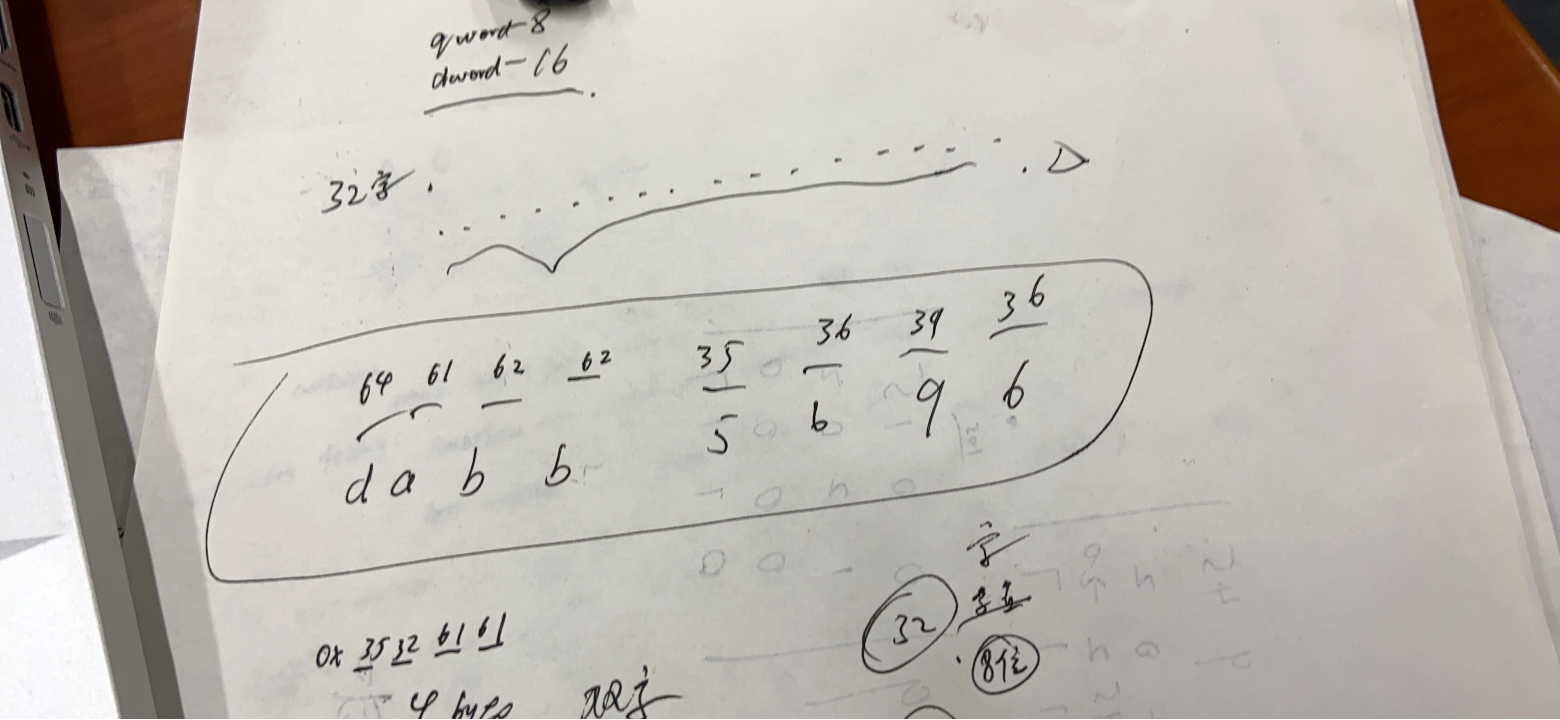 qword-8
dword-16
32字.
64 61 62 62 35 36 39 36
d a b b 5 6 9 6
字
32 字节
8位
0x 35 32 61 61
4 bytes 双字